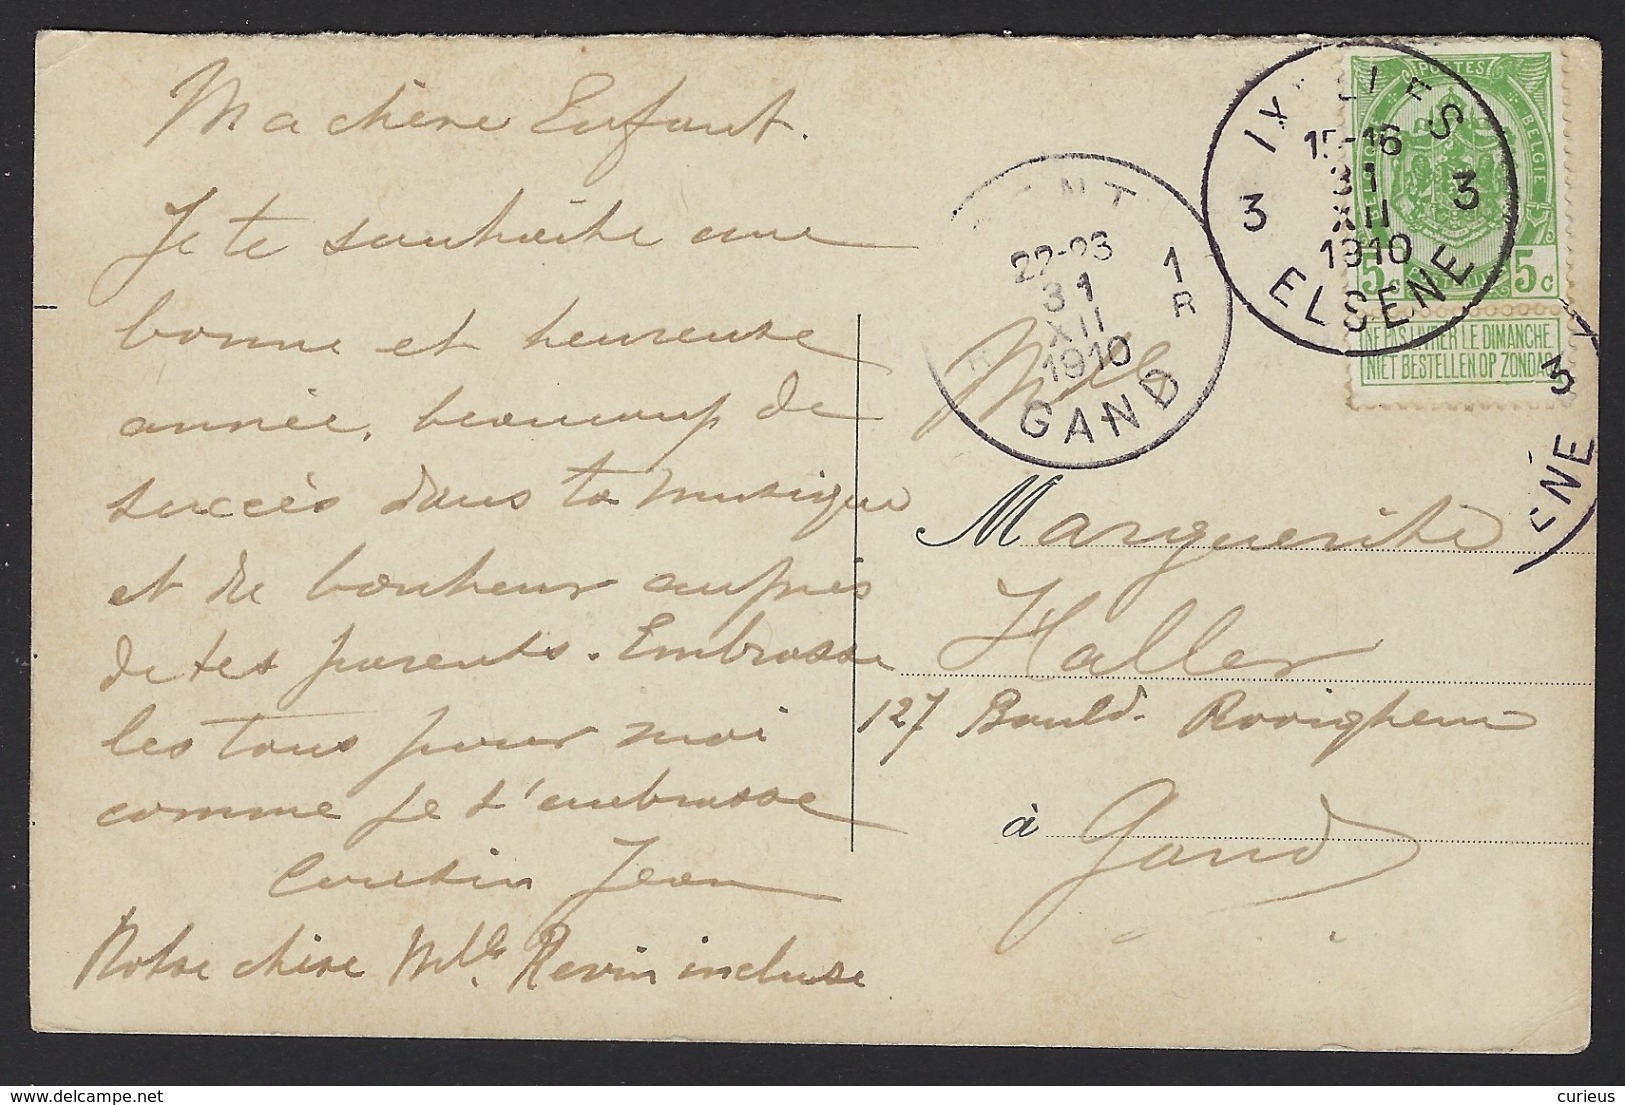 Ma chère Enfant.
Je te souhaite une
bonne et heureuse
année, beaucoup de
succès dans ta musique
et de bonheur auprès
de tes parents. Embrasse
les tous pour moi
comme je t'embrasse
Cousin Jean
Notre chère Mlle. Revin incluse
POSTES
BELGIE
5c 5c
NE PAS LIVRER LE DIMANCHE
NIET BESTELLEN OP ZONDAG
IXELLES
3 3
15-16
31
XII
1910
ELSENE
3
ENE
GENT
22-23
31
XII
1910
1
R
GAND
Mlle
M Marguerite
Haller
127 Bould. Rooighem
à Gand
delcampe.net
curieus